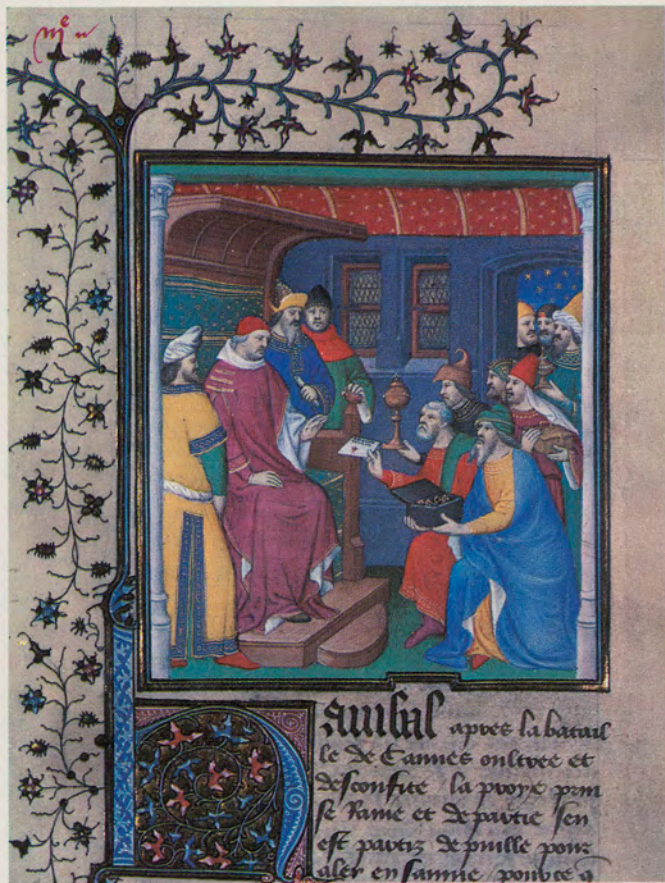 Hanibal apres la batail
le de Cannes oultree et
desconfite la proye prin
se Rauie et departie sen
est partiz de puille pour
aler en samnie pource q